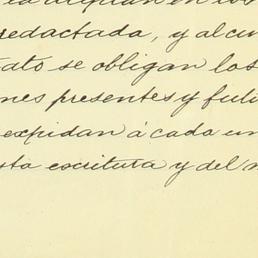 redactada, y al cum
se obligan los
nes presentes y futu
expidan á cada un
sta escritura y del